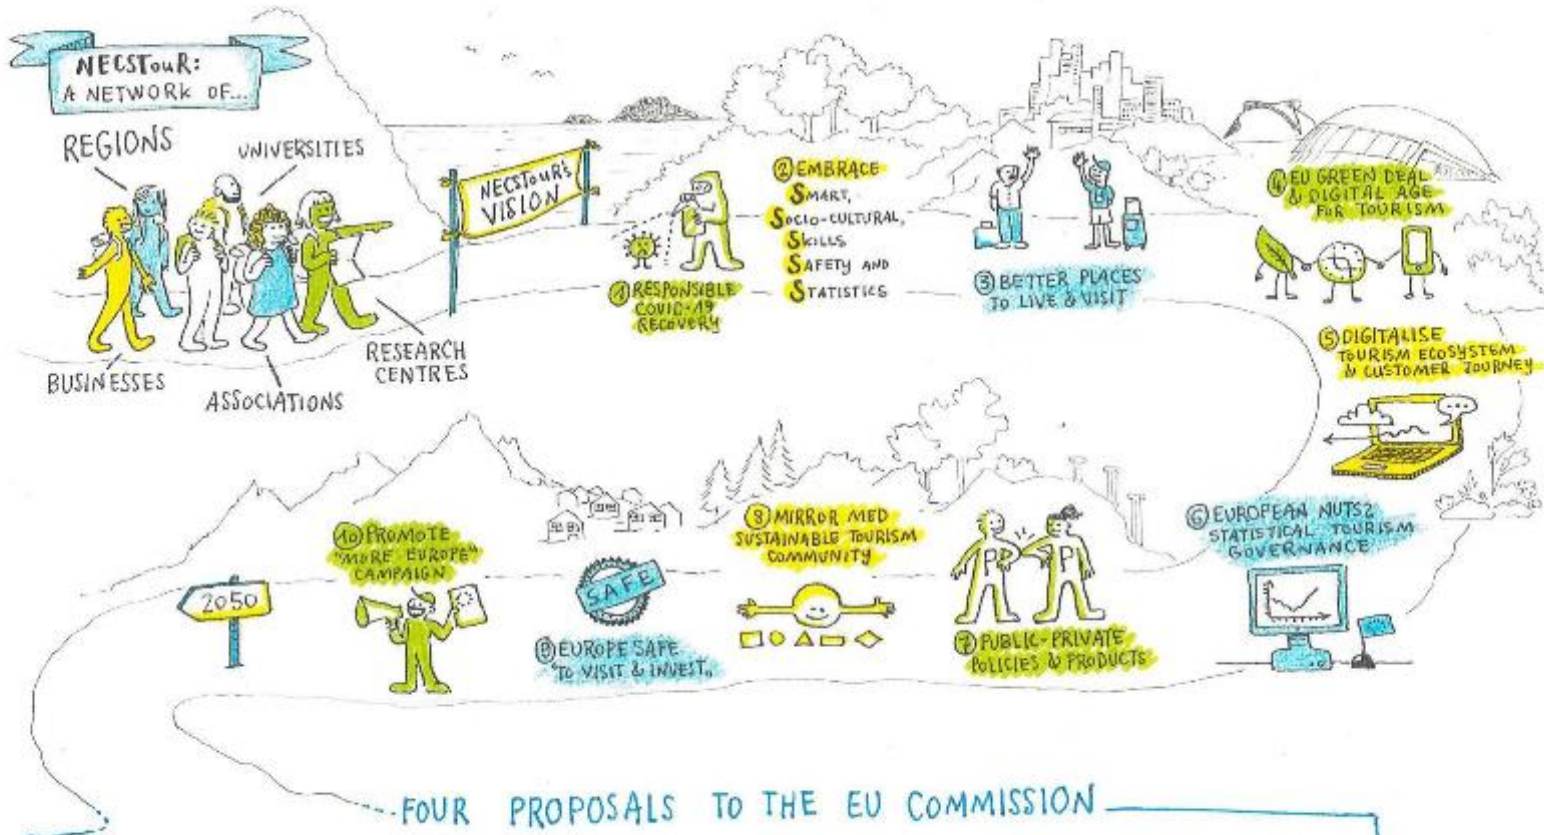 NECSTouR:
A NETWORK OF...
REGIONS
UNIVERSITIES
BUSINESSES
ASSOCIATIONS
RESEARCH
CENTRES
NECSTouR's
VISION
1 RESPONSIBLE
COVID-19
RECOVERY
2 EMBRACE
SMART,
SOCIO-CULTURAL,
SKILLS
SAFETY AND
STATISTICS
3 BETTER PLACES
TO LIVE & VISIT
4 EU GREEN DEAL
& DIGITAL AGE
FOR TOURISM
5 DIGITALISE
TOURISM ECOSYSTEM
& CUSTOMER JOURNEY
6 EUROPEAN NUTS2
STATISTICAL TOURISM
GOVERNANCE
P P
7 PUBLIC-PRIVATE
POLICIES & PRODUCTS
8 MIRROR MED
SUSTAINABLE TOURISM
COMMUNITY
SAFE
9 EUROPE SAFE
"TO VISIT & INVEST"
10 PROMOTE
"MORE EUROPE"
CAMPAIGN
2050
FOUR PROPOSALS TO THE EU COMMISSION